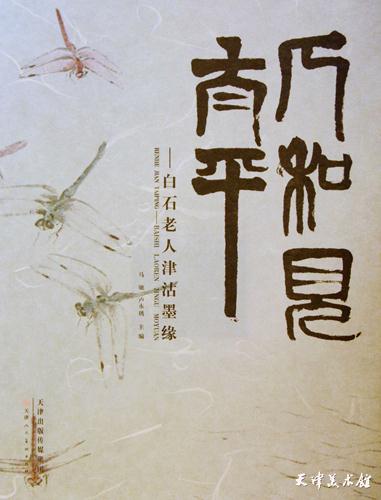 人和見
太平
——白石老人津沽墨缘
RENHE JIAN TAIPING——BAISHI LAOREN JINGU MOYUAN
主编
天津出版传媒集团
天津人民美术出版社
天津美术館